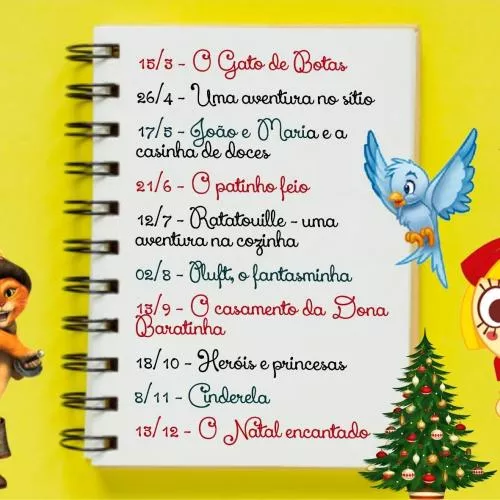 15/3 - O Gato de Botas
26/4 - Uma aventura no sítio
17/5 - João e Maria e a
casinha de doces
21/6 - O patinho feio
12/7 - Ratatouille - uma
aventura na cozinha
02/8 - Pluft, o fantasminha
13/9 - O casamento da Dona
Baratinha
18/10 - Heróis e princesas
8/11 - Cinderela
13/12 - O Natal encantado